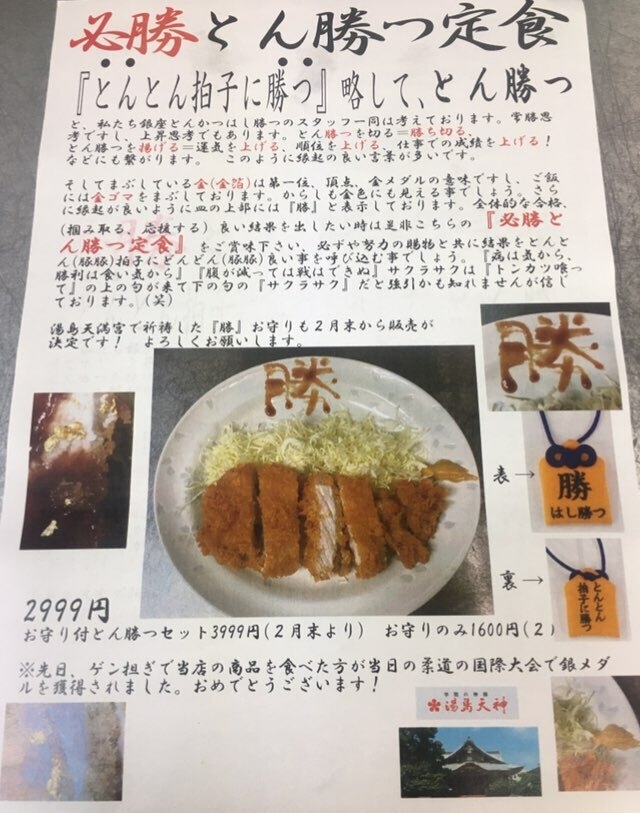 必勝とん勝つ定食
『とんとん拍子に勝つ』略して、とん勝つ
と、私たち銀座とんかつはし勝つのスタッフ一同は考えております。常勝思
考ですし、上昇思考でもあります。とん勝つを切る＝勝ち切る、
とん勝つを揚げる＝運気を上げる、順位を上げる、仕事での成績を上げる！
などにも繋がります。 このように縁起の良い言葉が多いです。
そしてまぶしている金(金箔)は第一位、頂点、金メダルの意味ですし、ご飯
には金ゴマをまぶしております。からしも金色にも見える事でしょう。さら
に縁起が良いように皿の上部には『勝』と表示しております。全体的な合格、
(掴み取る、応援する) 良い結果を出したい時は是非こちらの『必勝と
ん勝つ定食』をご賞味下さい、必ずや努力の賜物と共に結果をとんと
ん(豚豚)拍子にどんどん(豚豚)良い事を呼び込む事でしょう。『病は気から、
勝利は食い気から』『腹が減っては戦はできぬ』サクラサクは『トンカツ喰っ
て』の上の句が来て下の句の『サクラサク』だと強引かも知れませんが信じ
ております。(笑)
湯島天満宮で祈祷した『勝』お守りも２月末から販売が
決定です！ よろしくお願いします。
勝
勝
表→
勝
はし勝つ
裏→
とんとん
拍子に勝つ
2999円
お守り付とん勝つセット3999円(２月末より) お守りのみ1600円(２)
※先日、ゲン担ぎで当店の商品を食べた方が当日の柔道の国際大会で銀メダ
ルを獲得されました。おめでとうございます！
学問の神様
湯島天神